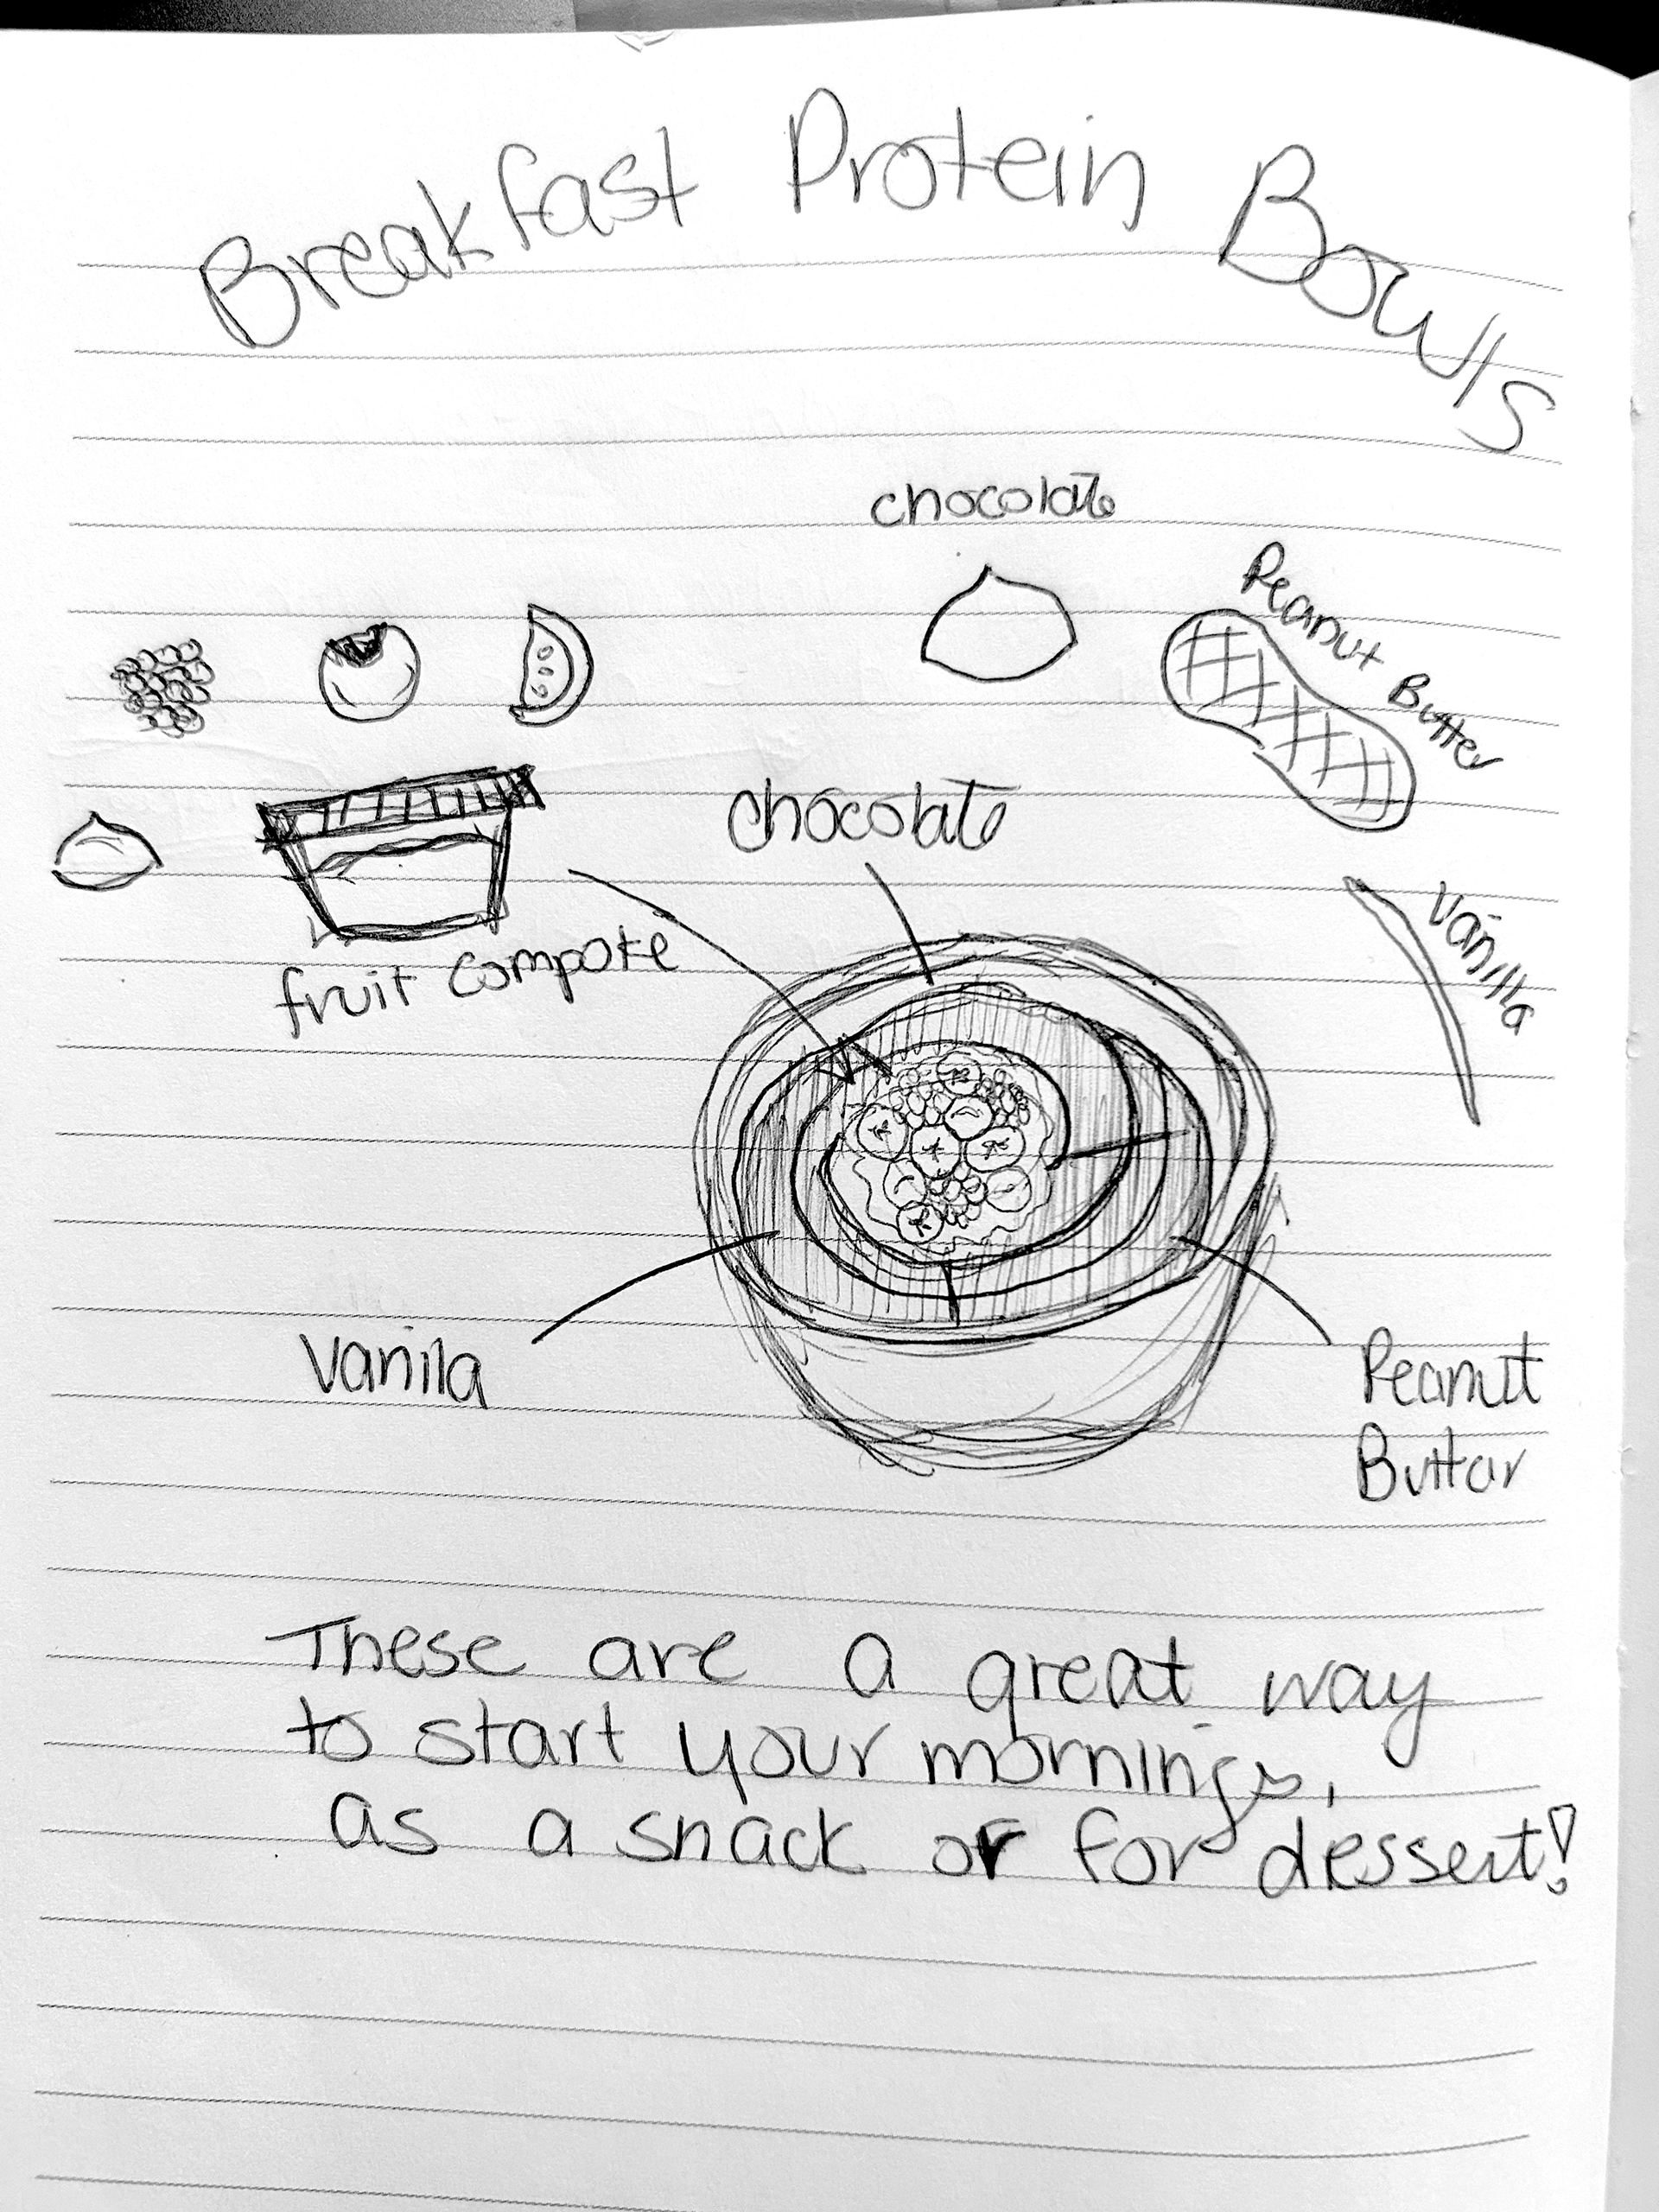 Breakfast Protein Bowls
chocolate
Peanut Butter
chocolate
Vanilla
fruit compote
Vanila
Peanut
Buttar
These are a great way
to start your mornings,
as a snack or for dessert!